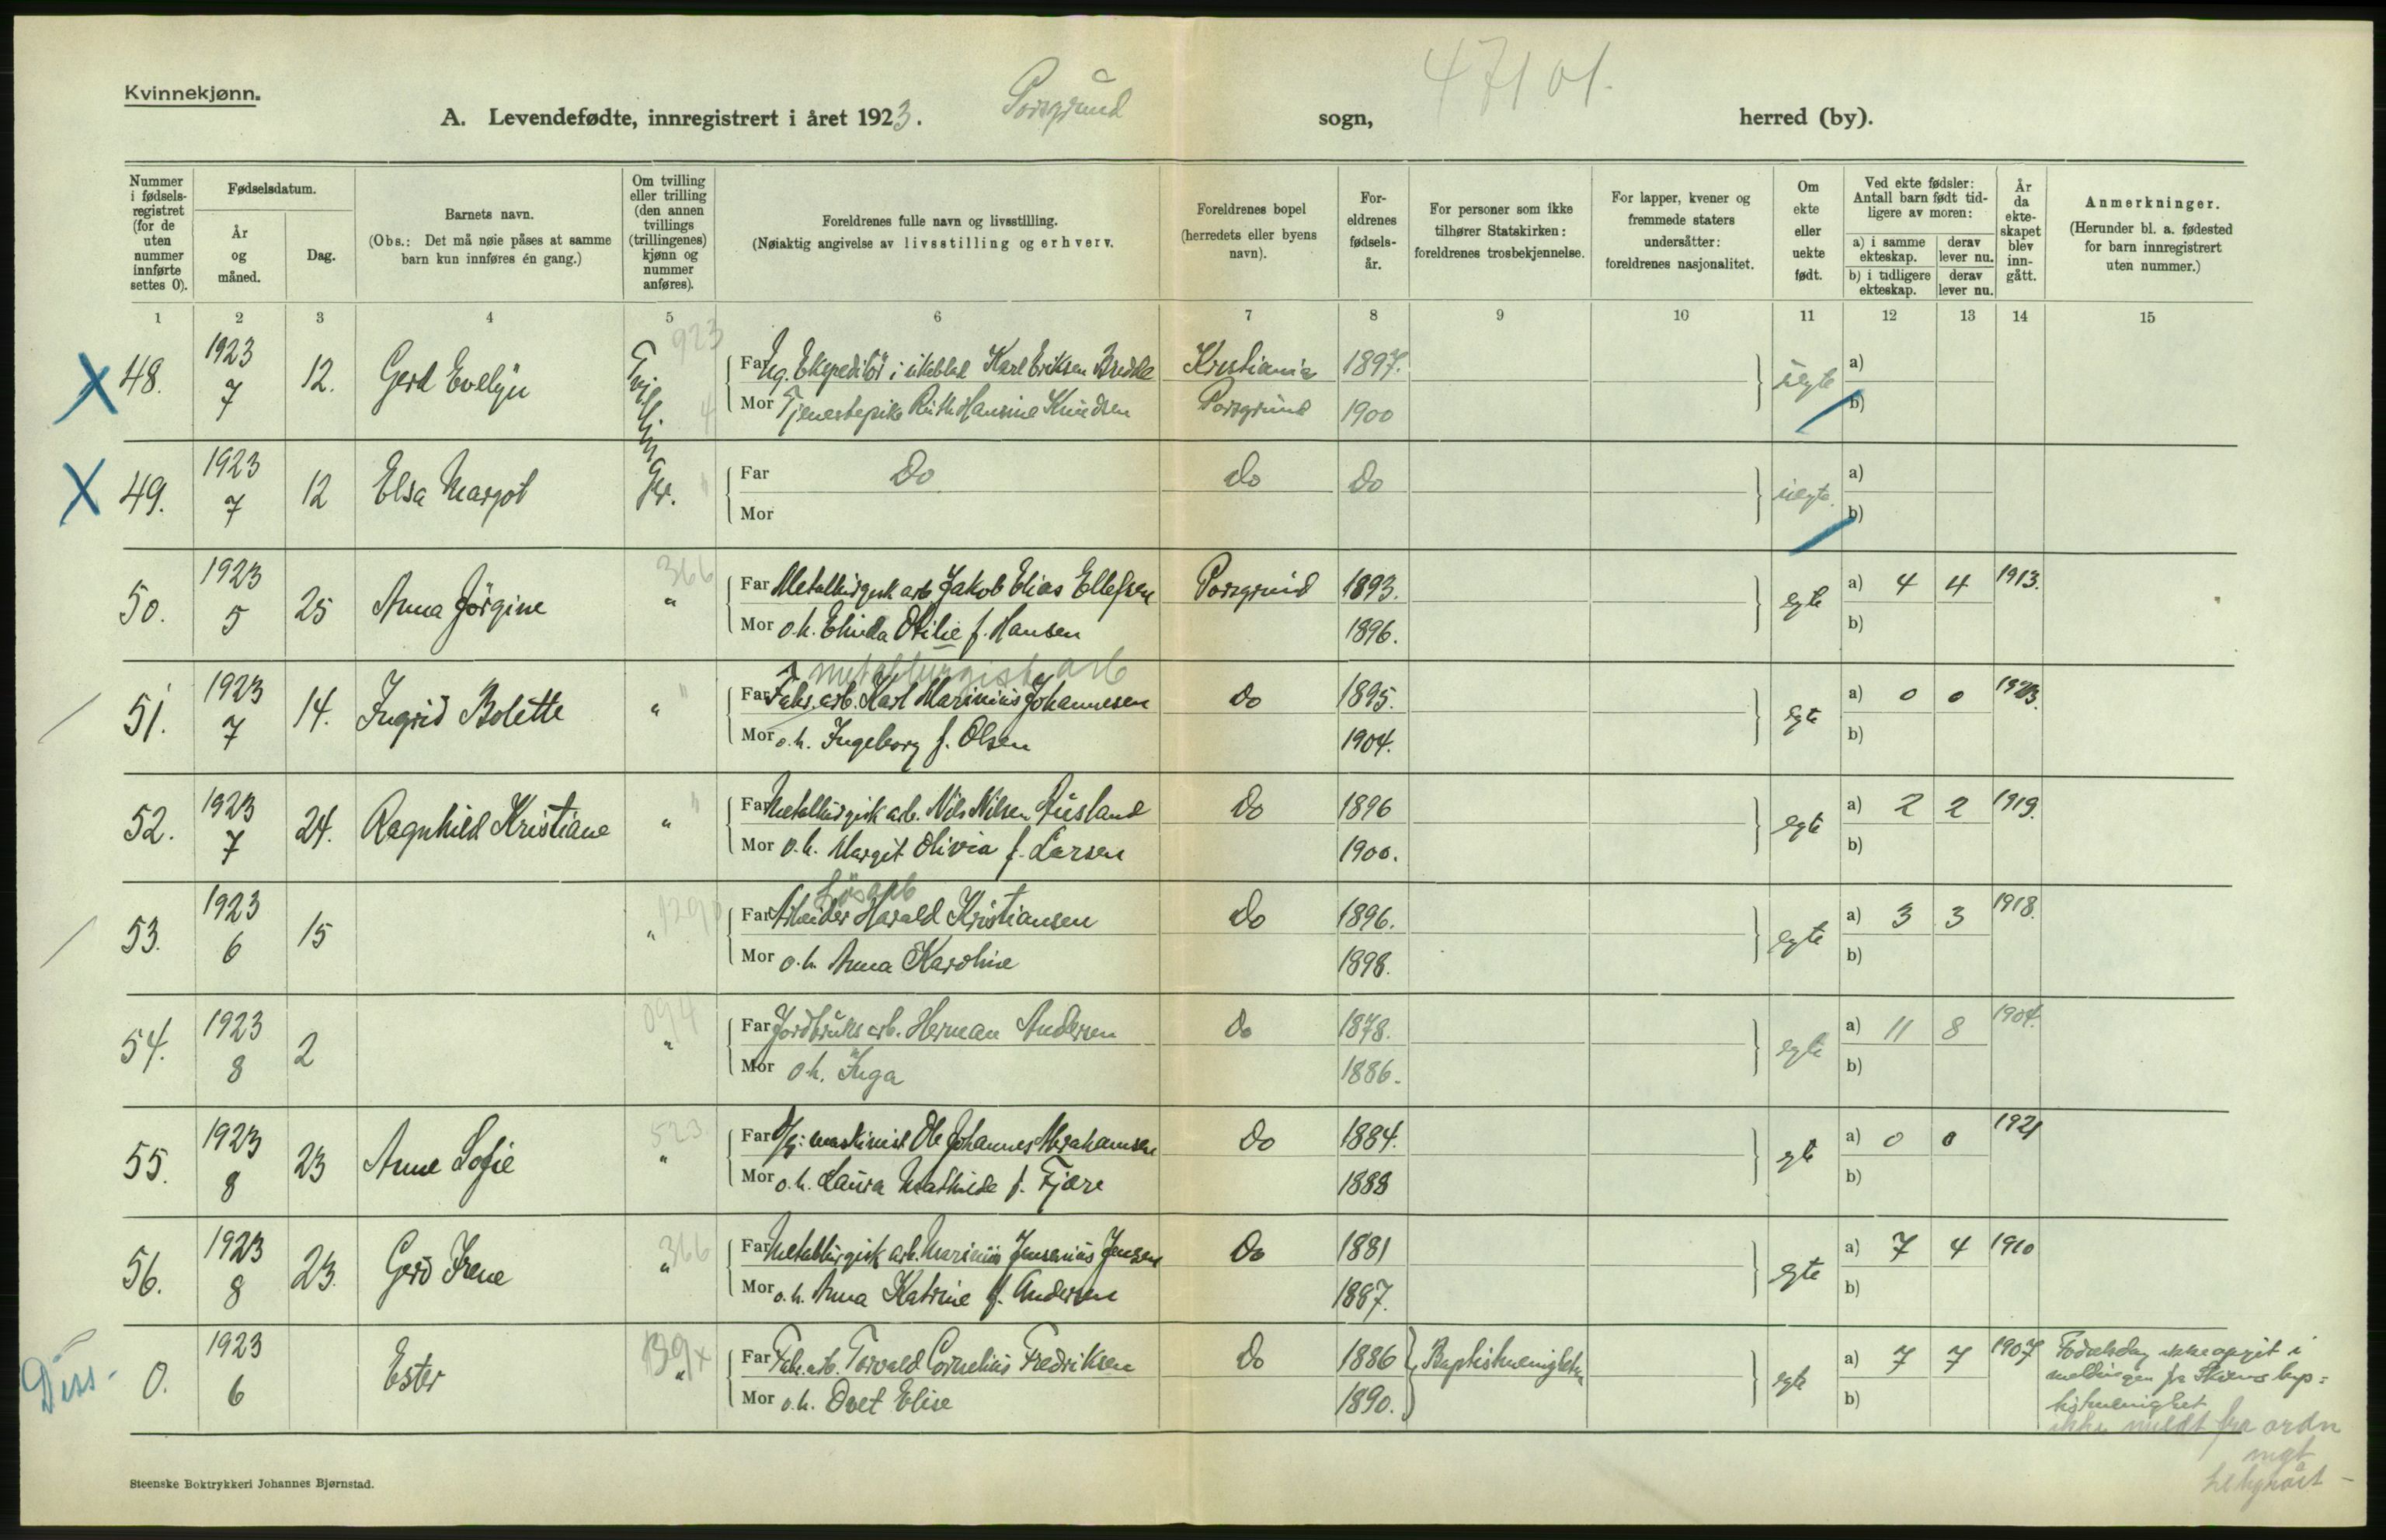 Kvinnekjønn.
A. Levendefødte, innregistrert i året 1923. Porsgrund sogn, herred (by).
Nummer i fødselsregistret (for de uten nummer innførte settes 0).
Fødselsdatum.
År og måned.
Dag.
Barnets navn.
(Obs.: Det må nøie påses at samme barn kun innføres én gang.)
Om tvilling eller trilling (den annen tvillings (trillingenes) kjønn og nummer anføres).
Foreldrenes fulle navn og livsstilling.
(Nøiaktig angivelse av livsstilling og erhverv.
Foreldrenes bopel (herredets eller byens navn).
Foreldrenes fødselsår.
For personer som ikke tilhører Statskirken: foreldrenes trosbekjennelse.
For lapper, kvener og fremmede staters undersåtter: foreldrenes nasjonalitet.
Om ekte eller uekte født.
Ved ekte fødsler: Antall barn født tidligere av moren:
a) i samme ekteskap. derav lever nu.
b) i tidligere ekteskap. derav lever nu.
År da ekteskapet blev inngått.
Anmerkninger.
(Herunder bl. a. fødested for barn innregistrert uten nummer.)
1 2 3 4 5 6 7 8 9 10 11 12 13 14 15
X 48. 1923 7 12. Gerd Evelyn Tvillinger. 923
Far Ug. Ekspeditör i Karl Eriksen Kristiania 1897. uegte a)
Mor Tjenestepike Ruth Hansine Knudsen Porsgrund 1900 b)
X 49. 1923 7 12 Elsa Margot
Far Do do Do uegte a)
Mor b)
50. 1923 5 25 Anna Jörgine " 366
Far Metallurgisk arb. Jakob Elias Ellefsen Porsgrund 1893. egte a) 4 4 1913.
Mor o. h. Otilie f. Hansen 1896. b)
metallurgisk arb
51. 1923 7 14. Ingrid Bolette "
Far Fabr. arb. Karl Marinius Johannesen Do 1895. egte a) 0 0 1923.
Mor o. h. Ingeborg f. Olsen 1904. b)
52. 1923 7 24. Ragnhild Kristiane "
Far Metallurgisk arb. Nils Nilsen Do 1896 egte a) 2 2 1919.
Mor o. h. Margit Olivia f. Larsen 1900. b)
Lösarb
53. 1923 6 15 "
Far Arbeider Harald Kristiansen Do 1896. egte a) 3 3 1918.
Mor o. h. Anna Karoline 1898. b)
54. 1923 8 2 " 094
Far Jordbruks arb. Herman Andersen Do 1878. egte a) 11 8 1904.
Mor o. h. Inga 1886. b)
55. 1923 8 23 Anne Sofie " 523
Far maskinist Ole Johannes Abrahamsen Do 1884. egte a) 0 0 1921
Mor o. h. Laura Mathilde f. Fjære 1888 b)
56. 1923 8 23. Gerd Irene " 366
Far Metallurgisk arb. Marinius Jensenius Jensen Do 1881 egte a) 7 4 1910
Mor o. h. Anna Katrine f. Andersen 1887. b)
Diss- 0. 1923 6 Ester "
Far Fabr. arb. Torvald Cornelius Fredriksen Do 1886 Baptistmenigheten egte a) 7 7 1907 Födselsdag ikke opgit i
Mor o. h. Elise 1890. b) meldingen fra Skiens bap=
tistmenighet
ikke meldt fra
Steenske Boktrykkeri Johannes Bjørnstad.